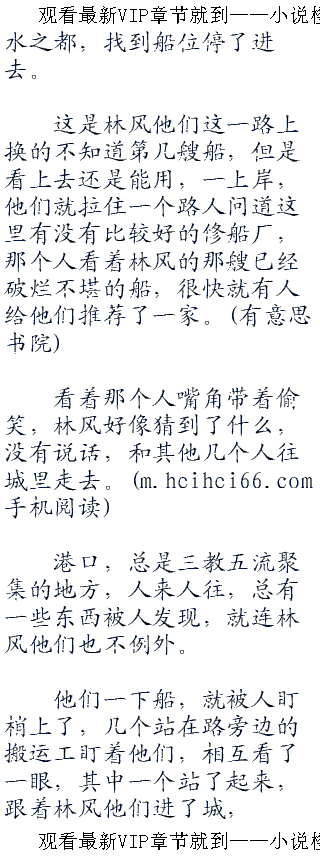 观看最新VIP章节就到——小说
水之都，找到船位停了进
去。
这是林风他们这一路上
换的不知道第几艘船，但是
看上去还是能用，一上岸，
他们就拉住一个路人问道这
里有没有比较好的修船厂，
那个人看着林风的那艘已经
破烂不堪的船，很快就有人
给他们推荐了一家。(有意思
书院)
看着那个人嘴角带着偷
笑，林风好像猜到了什么，
没有说话，和其他几个人往
城里走去。(m.hcihci66.com
手机阅读)
港口，总是三教五流聚
集的地方，人来人往，总有
一些东西被人发现，就连林
风他们也不例外。
他们一下船，就被人盯
梢上了，几个站在路旁边的
搬运工盯着他们，相互看了
一眼，其中一个站了起来，
跟着林风他们进了城，
观看最新VIP章节就到——小说